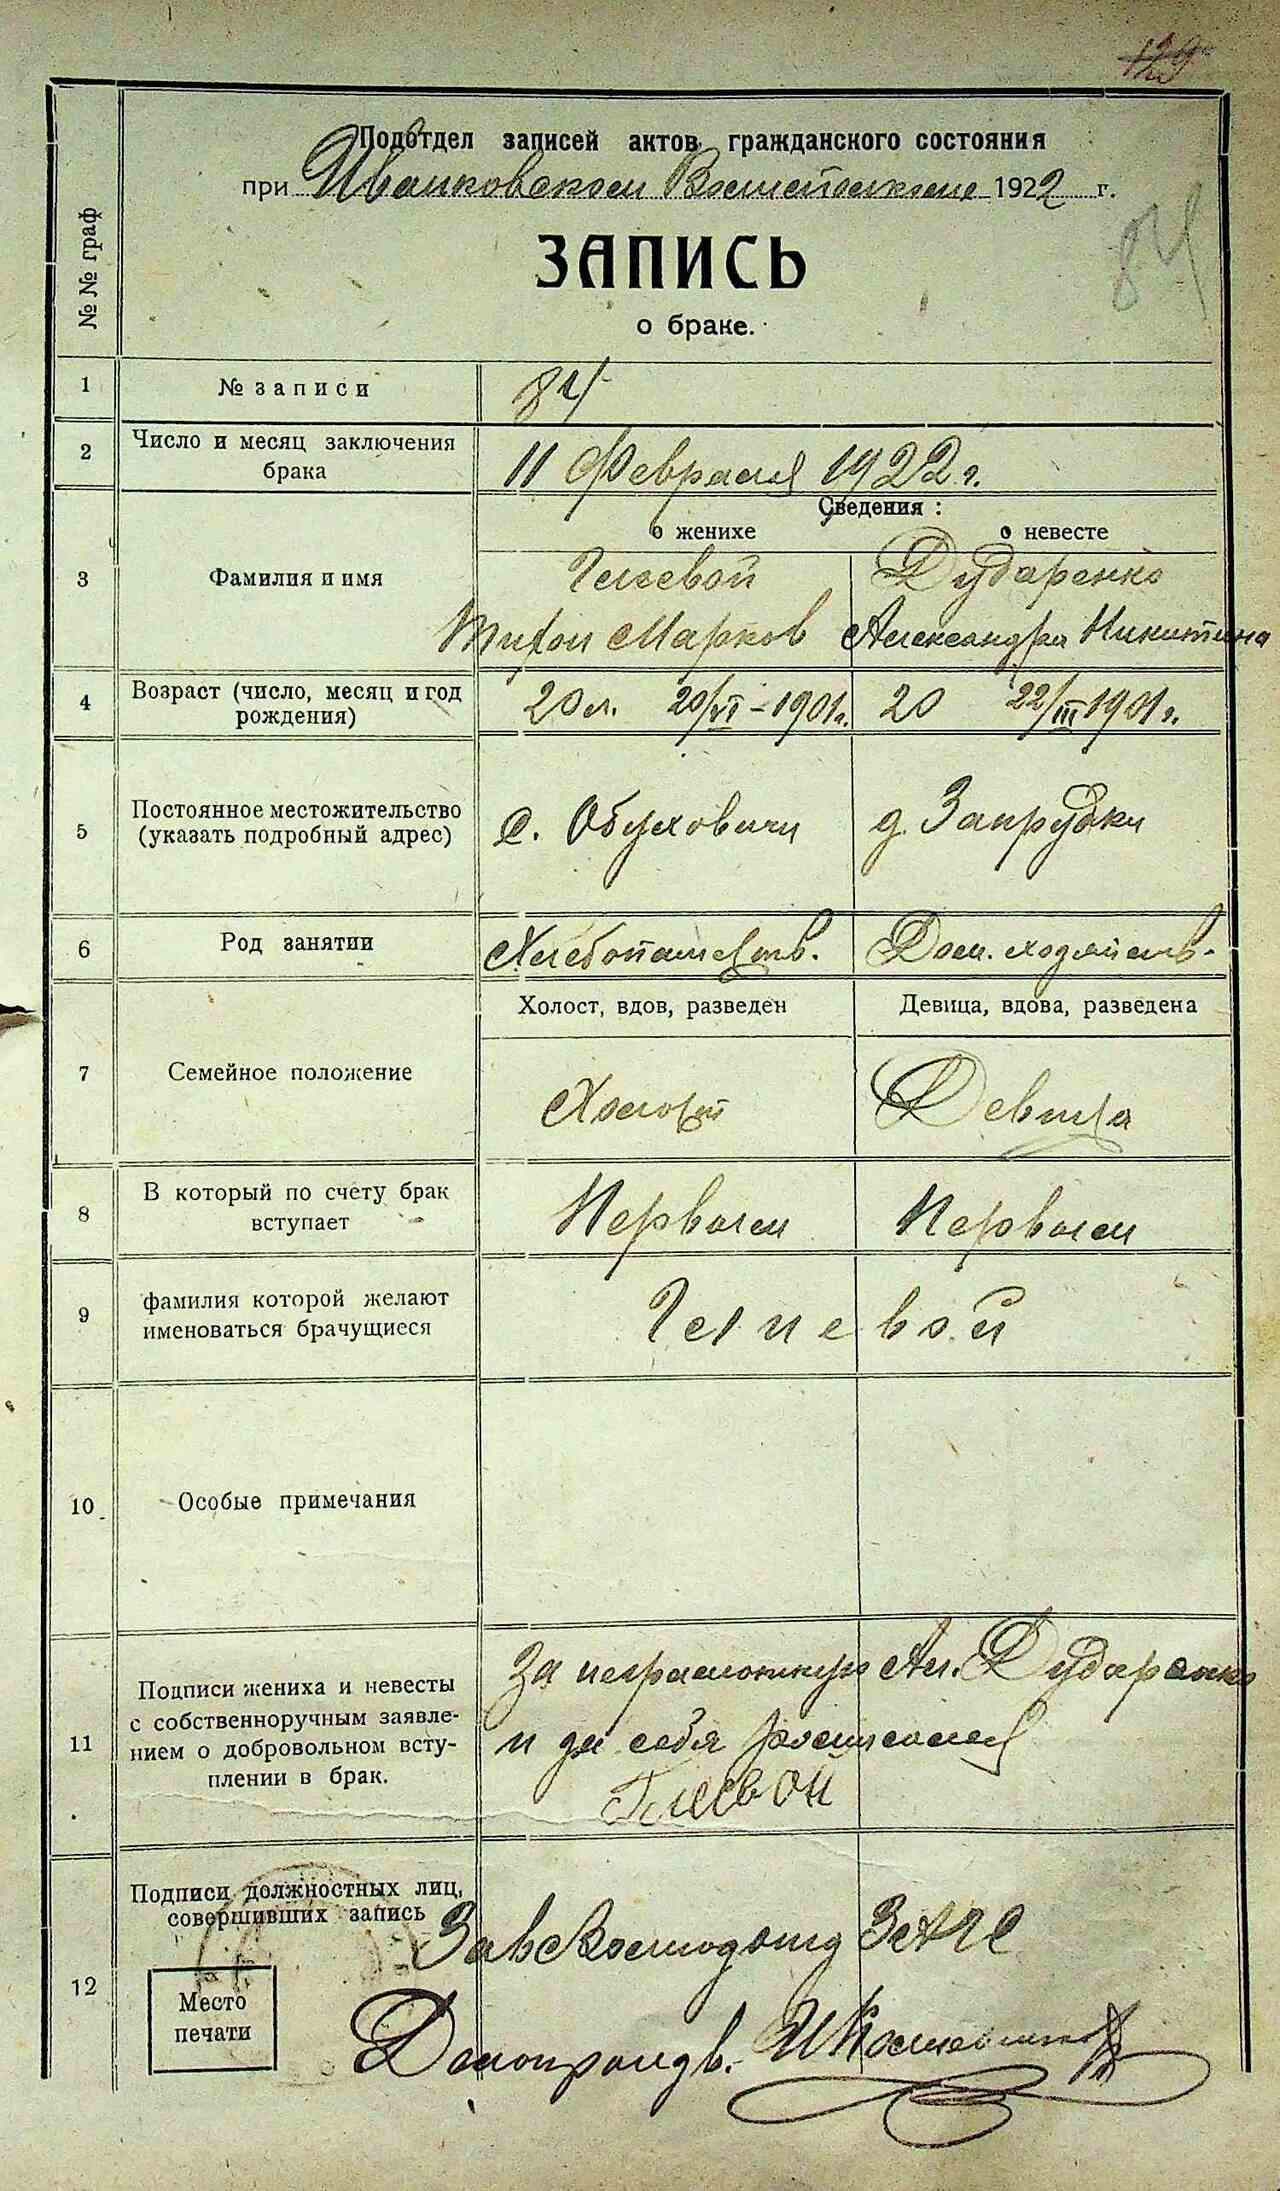 129
Подотдел записей актов гражданского состояния
при Иванковском Волисполкоме 1922 г.
84
ЗАПИСЬ
о браке.
№ № граф
1 № записи 84
2 Число и месяц заключения брака 11 Февраля 1922 г.
Сведения:
о женихе о невесте
3 Фамилия и имя
Дударенко
Тихон Марков Александра Никитина
4 Возраст (число, месяц и год рождения) 20 л. 20/VI – 1901 г. 20 22/III 1901 г.
5 Постоянное местожительство (указать подробный адрес) с. Обуховичи д. Запрудки
6 Род занятии Хлебопашеств. Дом. хозяйств.
Холост, вдов, разведен Девица, вдова, разведена
7 Семейное положение Холост Девица
8 В который по счету брак вступает Первым Первым
9 фамилия которой желают именоваться брачущиеся
10 Особые примечания
11 Подписи жениха и невесты с собственноручным заявлением о добровольном вступлении в брак.
За неграмотную Ал. Дударенко
и за себя росписался
12 Подписи должностных лиц, совершивших запись
ЗАГС
Место
печати
Делопроизв.